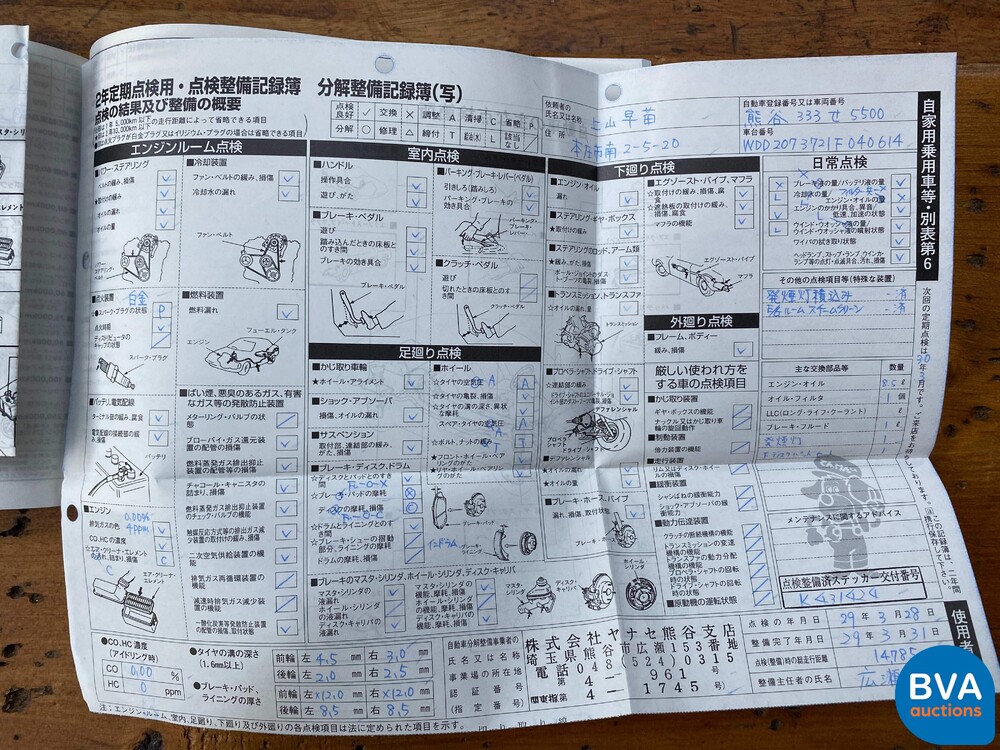 2年定期点検用・点検整備記録簿 分解整備記録簿(写)
点検の結果及び整備の概要
点検良好 ✓ 交換 × 調整 A 清掃 C 省略 P
分解 ○ 修理 △ 締付 T 給油 L 該当なし
依頼者の氏名又は名称
上山早苗
住所
本庄市南2-5-20
自動車登録番号又は車両番号
熊谷 333 せ 5500
車台番号
WDD2073721F040614
自家用乗用車等・別表第6
エンジンルーム点検
■パワー・ステアリング
ベルトの緩み、損傷
★取付けの緩み
オイルの漏れ
オイルの量
■冷却装置
ファン・ベルトの緩み、損傷
冷却水の漏れ
ファン・ベルト
■点火装置 白金
スパーク・プラグの状態 P
点火時期
ディストリビュータのキャップの状態
スパーク・プラグ
■燃料装置
燃料漏れ
フューエル・タンク
エンジン
■バッテリ、電気配線
ターミナル部の緩み、腐食
電気配線の接続部の緩み、損傷
バッテリ
■ばい煙、悪臭のあるガス、有害なガス等の発散防止装置
メターリング・バルブの状態
ブローバイ・ガス還元装置の配管の損傷
燃料蒸発ガス排出抑止装置の配管等の損傷
チャコール・キャニスタの詰まり、損傷
燃料蒸発ガス排出抑止装置のチェック・バルブの機能
触媒反応方式等の排出ガス減少装置の取付けの緩み、損傷
二次空気供給装置の機能
排気ガス再循環装置の機能
減速時排気ガス減少装置の機能
一酸化炭素等発散防止装置の配管の損傷、取付状態
■エンジン
排気ガスの色
0.00%
4ppm
CO、HCの濃度
エア・クリーナ・エレメント
エア・クリーナ・エレメント
室内点検
■ハンドル
操作具合
遊び、がた
■ブレーキ・ペダル
遊び
踏み込んだときの床板とのすき間
ブレーキの効き具合
ブレーキ・ペダル
■パーキング・ブレーキ・レバー(ペダル)
引きしろ(踏みしろ)
パーキング・ブレーキの効き具合
パーキング・ブレーキ・レバー
■クラッチ・ペダル
遊び
切れたときの床板とのすき間
クラッチ・ペダル
足廻り点検
■かじ取り車輪
★ホイール・アライメント
■ショック・アブソーバ
損傷、オイルの漏れ
■サスペンション
取付部、連結部の緩み、がた、損傷
■ブレーキ・ディスク、ドラム
☆ディスクとパッドとのすき間
☆ブレーキ・パッドの摩耗
ディスクの摩耗、損傷
☆ドラムとライニングとのすき間
☆ブレーキ・シューの摺動部分、ライニングの摩耗
ドラムの摩耗、損傷
インドラム
ブレーキ・パッド
ブレーキ・ライニング
■ホイール
☆タイヤの空気圧
☆タイヤの亀裂、損傷
☆タイヤの溝の深さ、異状な摩耗
スペア・タイヤの空気圧
☆ボルト、ナットの緩み
★フロント・ホイール・ベアリングのがた
★リヤ・ホイール・ベアリングのがた
■ブレーキのマスタ・シリンダ、ホイール・シリンダ、ディスク・キャリパ
マスタ・シリンダの液漏れ
ホイール・シリンダの液漏れ
ディスク・キャリパの液漏れ
マスタ・シリンダの機能、摩耗、損傷
ホイール・シリンダの機能、摩耗、損傷
ディスク・キャリパの機能、摩耗、損傷
マスタ・シリンダ
ディスク・キャリパ
ホイール・シリンダ
下廻り点検
■エンジン・オイル
漏れ
■ステアリング・ギヤ・ボックス
★取付けの緩み
■ステアリングのロッド、アーム類
★緩み、がた、損傷
ボール・ジョイントのダスト・ブーツの亀裂、損傷
■トランスミッション、トランスファ
☆オイルの漏れ、量
トランスミッション
■プロペラ・シャフト、ドライブ・シャフト
☆連結部の緩み
プロペラ・シャフト
デファレンシャル
■デファレンシャル
☆オイルの漏れ、量
■ブレーキ・ホース、パイプ
漏れ、損傷、取付状態
■エグゾースト・パイプ、マフラ
☆取付けの緩み、損傷、腐食
☆遮熱板の取付けの緩み、損傷、腐食
マフラの機能
エグゾースト・パイプ
マフラ
外廻り点検
■フレーム、ボディー
緩み、損傷
厳しい使われ方をする車の点検項目
■かじ取り装置
ギヤ・ボックスの機能
ナックル又はかじ取り車輪の旋回動作
■制動装置
倍力装置の機能
■走行装置
リム又はディスク・ホイールの損傷
■緩衝装置
シャシばねの緩衝能力
ショック・アブソーバの緩衝能力
■動力伝達装置
クラッチの断続機構の機能
トランスミッションの変速機構の機能
トランスファの動力分配機構の機能
プロペラ・シャフトの回転時の状態
ドライブ・シャフトの回転時の状態
■原動機の運転状態
日常点検
ブレーキ液の量/バッテリ液の量
冷却水の量
エンジン・オイルの量
エンジンのかかり具合、異音/低速、加速の状態
ウインド・ウオッシャ液の量/
ウインド・ウオッシャ液の噴射状態
ワイパの拭き取り状態
ヘッドランプ、ストップ・ランプ、ウインカ・ランプ等の点灯・点滅具合、汚れ、損傷
その他の点検項目等(特殊な装置)
発煙灯積込み - 済
5名ルームスチームクリーン - 済
主な交換部品等 数量
エンジン・オイル 8.5 ℓ
オイル・フィルタ 1 個
LLC(ロング・ライフ・クーラント) ℓ
ブレーキ・フルード 1 ℓ
発煙灯 1
メンテナンスに関するアドバイス
点検整備済ステッカー交付番号
K431424
次回の定期点検は30年3月です。ご来店をお待ちしております。
●CO、HC濃度
(アイドリング時)
CO 0.00 %
HC 0 ppm
●タイヤの溝の深さ
(1.6mm以上)
前輪 左 4.5 mm 右 3.0 mm
後輪 左 2.0 mm 右 2.5 mm
●ブレーキ・パッド、ライニングの厚さ
前輪 左 ×12.0 mm 右 ×12.0 mm
後輪 左 8.5 mm 右 8.5 mm
注:エンジンルーム、室内、足廻り、下廻り及び外廻りの各点検項目は法に定められた項目を示す。
自動車分解整備事業者の
氏名又は名称
事業場の所在地
認証番号
(指定番号)
株式会社ヤナセ熊谷支店
埼玉県熊谷市広瀬153番地
電話048(524)0315
4―961号
関東指第4―1745号
点検の年月日 29年3月28日
整備完了年月日 29年3月31日
点検(整備)時の総走行距離 14785
整備主任者の氏名 広瀬
使用者
切り取り線
BVA
auctions